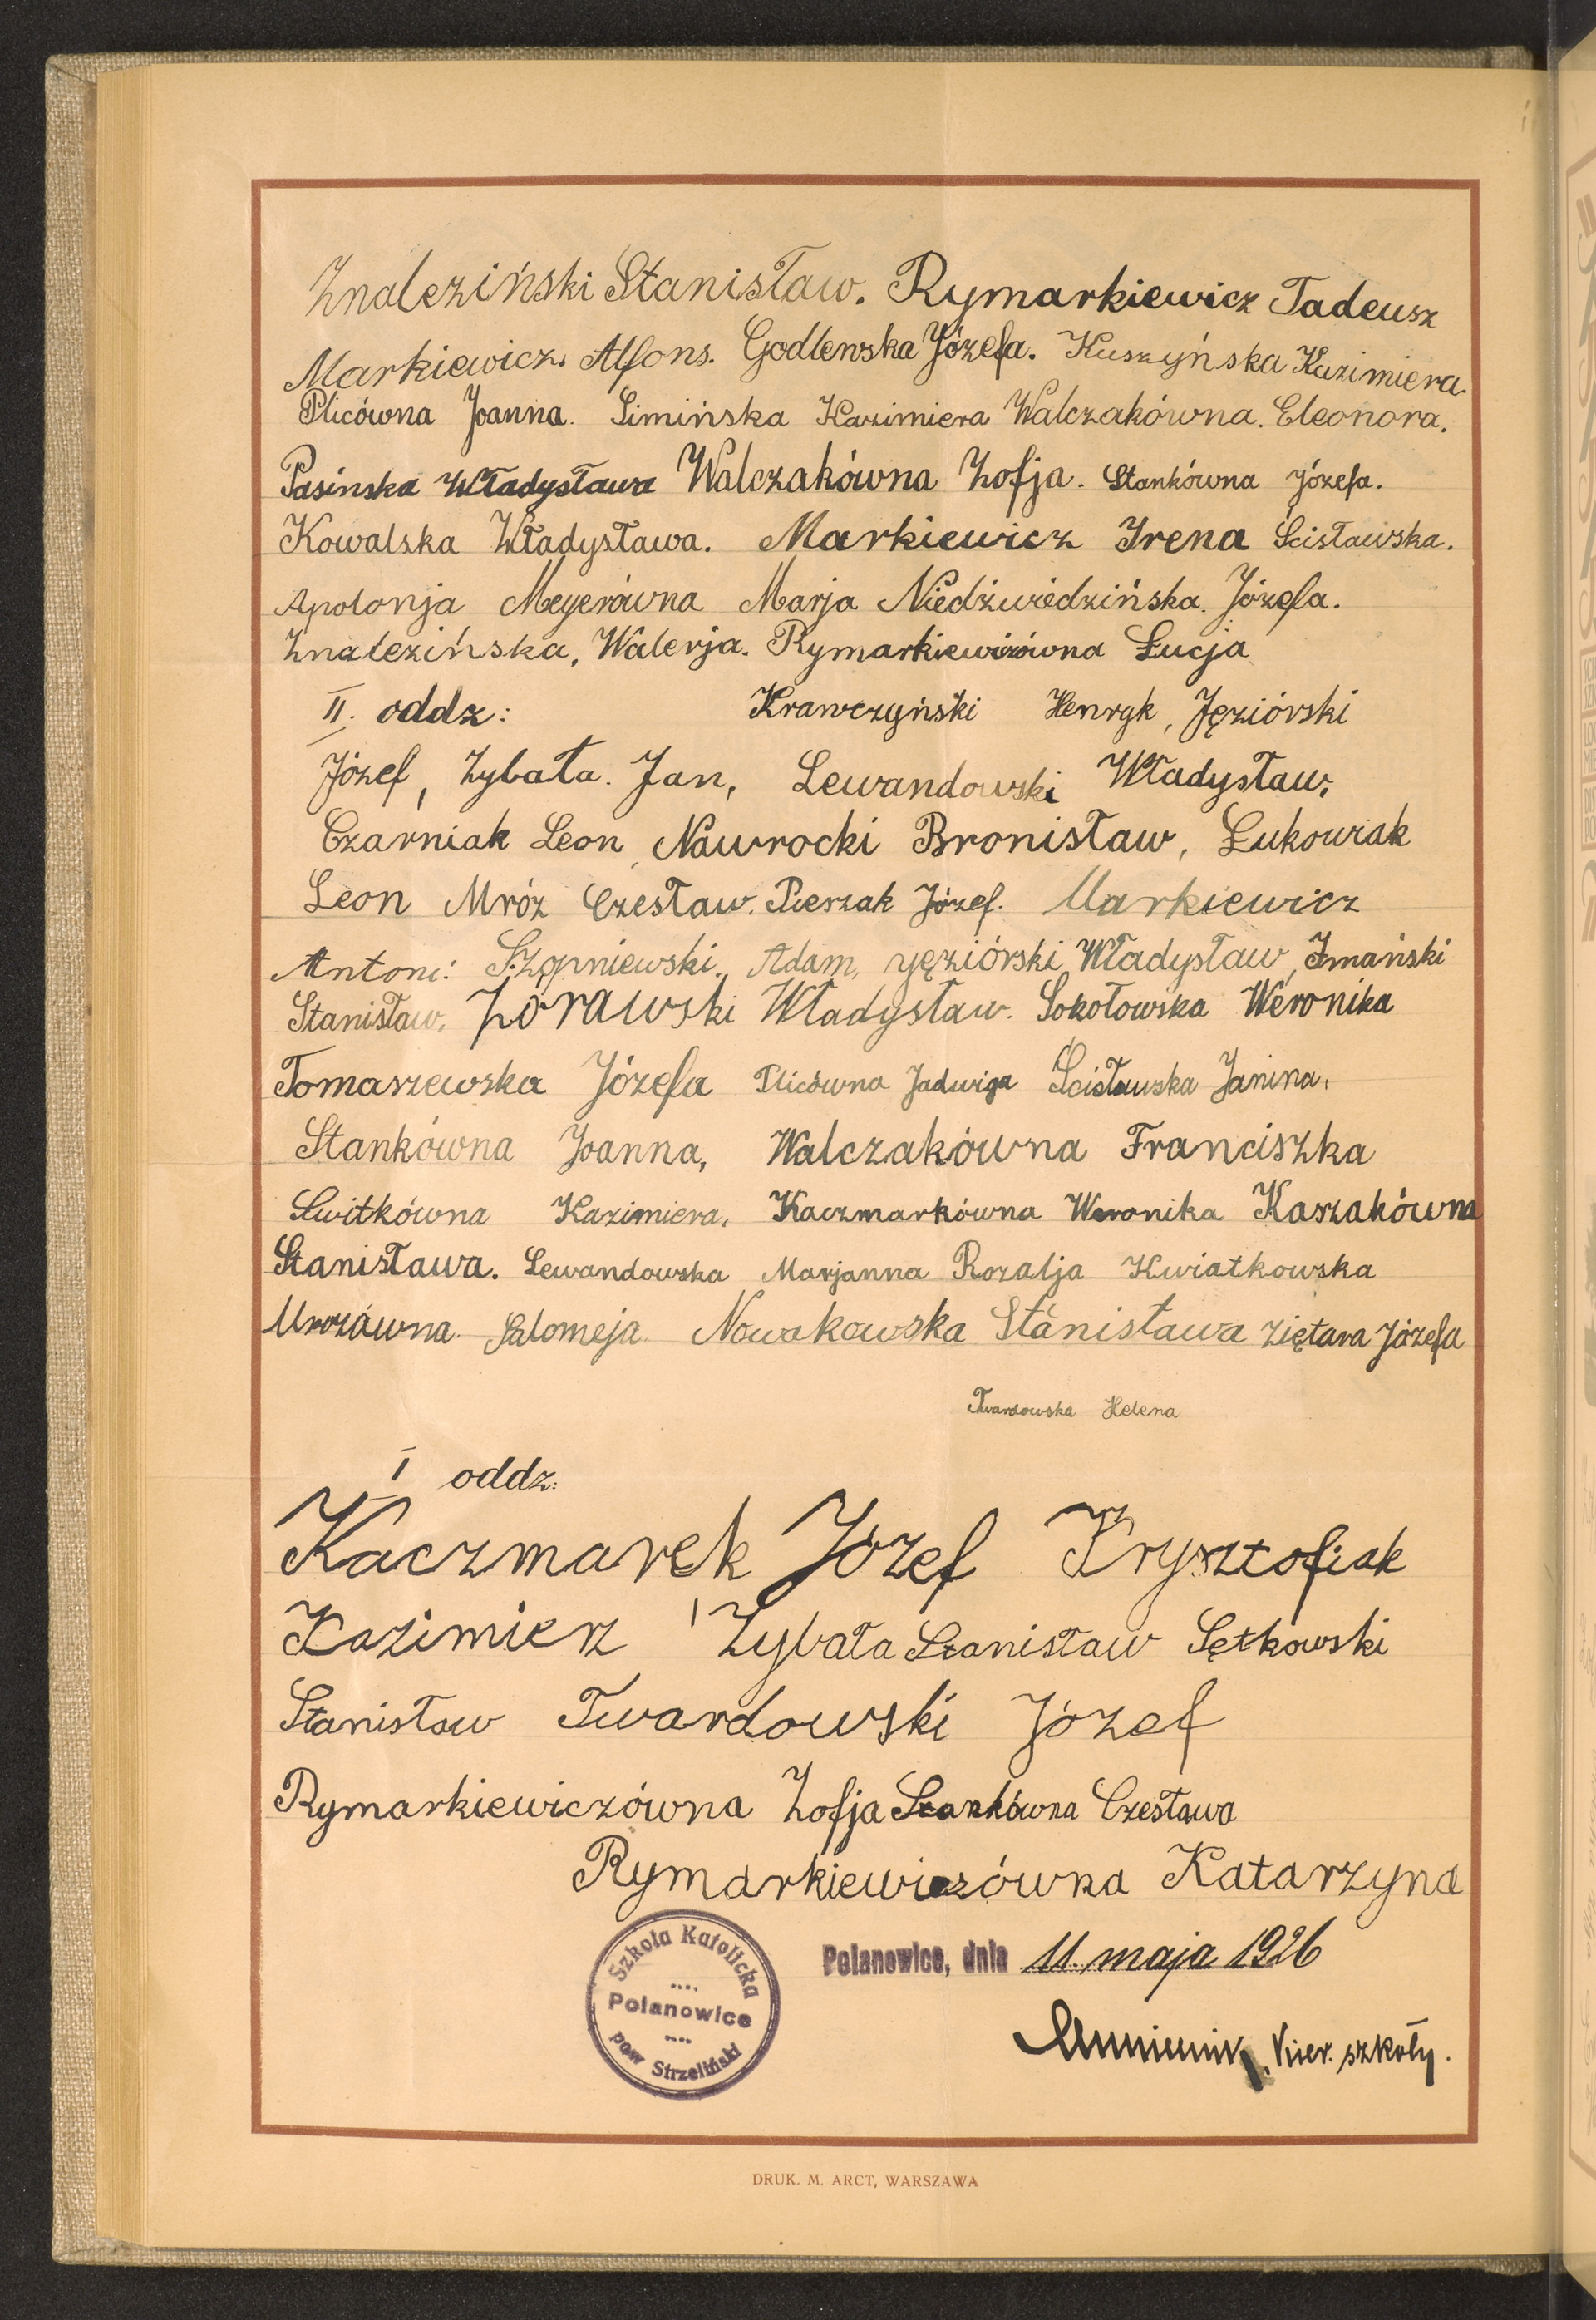 Znaleziński Stanisław. Rymarkiewicz Tadeusz
Markiewicz. Alfons. Godlewska Józefa. Kuszyńska Kazimiera.
Plicówna Joanna. Simińska Kazimiera Walczakówna. Eleonora.
Pasinska Władysława Walczakówna Zofja. Stankówna Józefa.
Kowalska Władysława. Markiewicz Irena Ścisławska.
Apolonja Meyerówna Marja Niedźwiedzińska. Józefa.
Znalezińska, Walerja. Rymarkiewiczówna Łucja
II. oddz: Krawczyński Henryk, Jęziórski
Józef, Zybała. Jan, Lewandowski Władysław,
Czarniak Leon, Nawrocki Bronisław, Łukowiak
Leon Mróz Czesław. Pieszak Józef. Markiewicz
Antoni. Szopniewski, Adam, Jęziórski Władysław, Imański
Stanisław, Żórawski Władysław. Sokołowska Weronika
Tomaszewska Józefa Plicówna Jadwiga Ścisławska Janina,
Stankówna Joanna, Walczakówna Franciszka
Switkówna Kazimiera, Kaczmarkówna Weronika Kaszakówna
Stanisława. Lewandowska Marjanna Rozalja Kwiatkowska
Mrozówna. Salomeja. Nowakowska Stanisława Ziętara Józefa
Twardowska Helena
I oddz:
Kaczmarek Józef Krysztofiak
Kazimierz, Zybała Stanisław Sętkowski
Stanisław Twardowski Józef
Rymarkiewiczówna Zofja Stankówna Czesława
Rymarkiewiczówna Katarzyna
Szkoła Katolicka
Polanowice
pow Strzeliński
Polanowice, dnia 11. maja 1926
kier. szkoły.
DRUK. M. ARCT, WARSZAWA